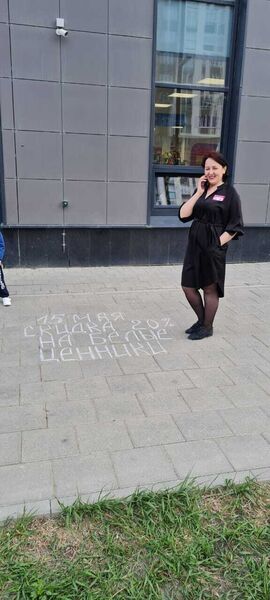 15 МАЯ
СКИДКА 20%
НА БЕЛЫЕ
ЦЕННИКИ